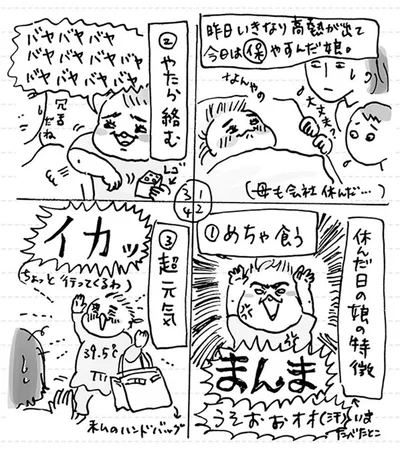 昨日いきなり高熱が出て
今日は㊡やすんだ娘。
なんやの
大丈夫?
(母も会社休んだ…)
3 1
4 2
休んだ日の娘の特徴
①めちゃ食う
まんま
うそおぉオオ(汗)
いま
たべたとこ
②やたら絡む
バヤ バヤ バヤ
バヤ バヤ バヤ バヤ
バヤ バヤ バヤ バヤ
冗舌だね
レゴ
③超元気
イカッ
ちょっと行ってくるわ)
39.5℃
私のハンドバッグ